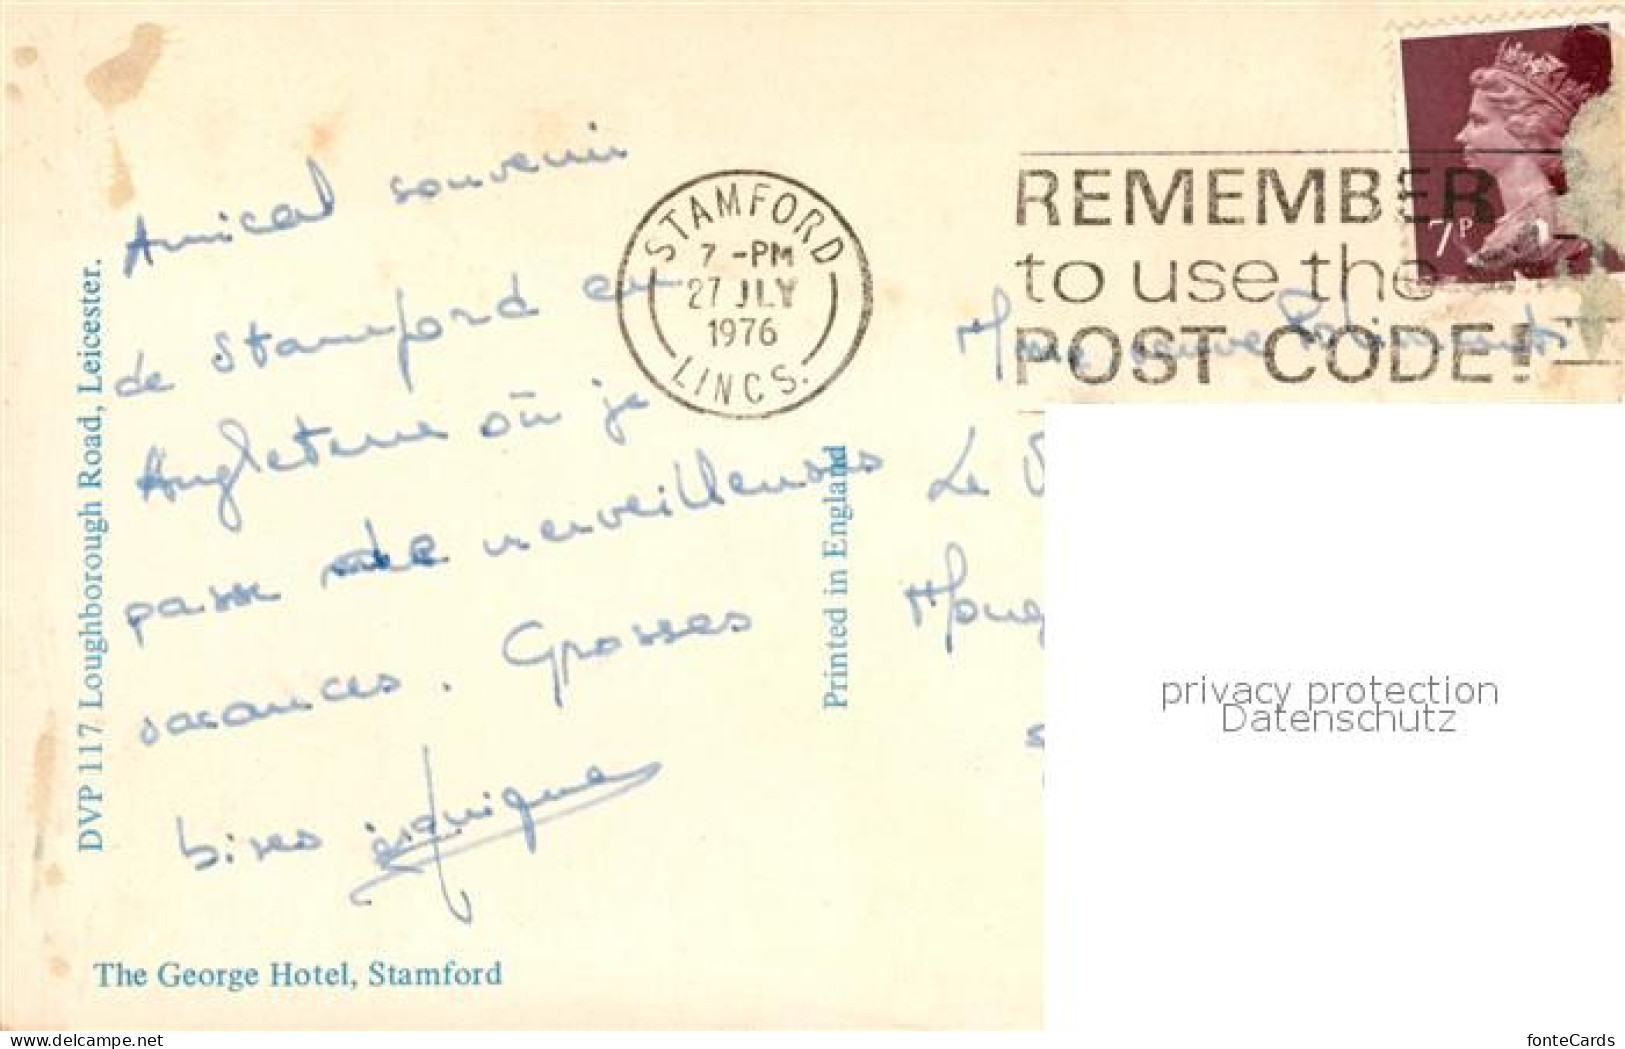 Amical souvenir
de Stamford en
Angleterre où je
passe de merveilleuses
vacances. Grosses
bises
STAMFORD
7 -PM
27 JLY
1976
LINCS.
REMEMBER
to use the
POST CODE!
7P
Le
DVP 117 Loughborough Road, Leicester.
Printed in England
The George Hotel, Stamford
privacy protection
Datenschutz
www.delcampe.net
fonteCards